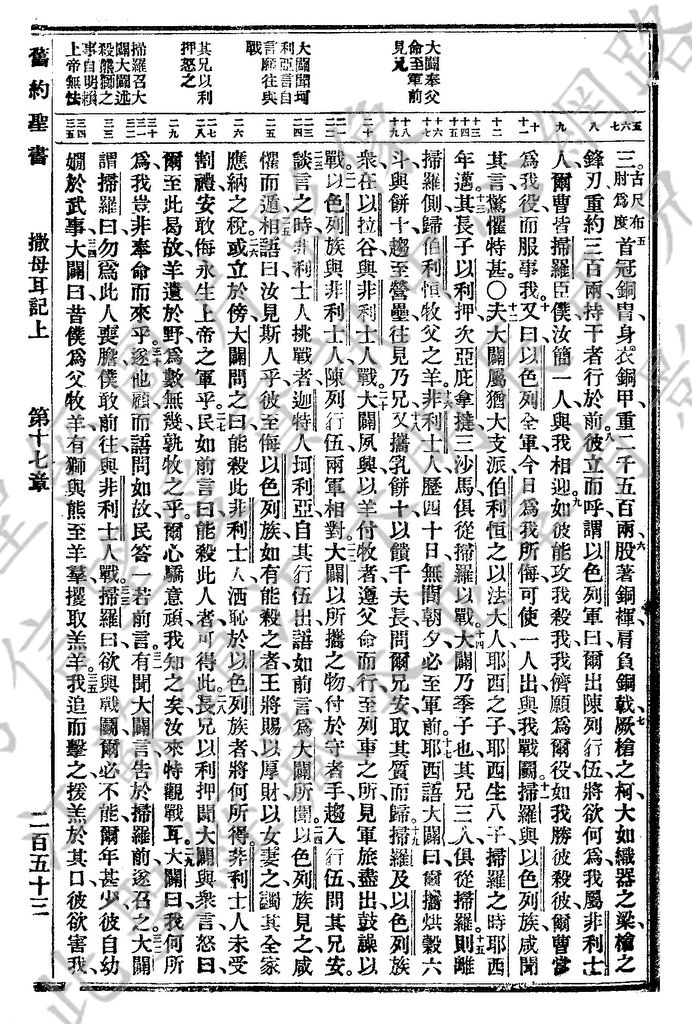 大闢奉父
命至軍前
見兄
大闢聞坷
利亞言自
言願往與
戰
其兄以利
押怒之
掃羅召大
闢大闢述
殺熊獅之
事自明賴
上帝無怯
五 六 七 八 九 十 十一 十二 十三 十四 十五 十六 十七 十八 十九 二十 二一 二二 二三 二四 二五 二六 二七 二八 二九 三十 三一 三二 三三 三四 三五
三。古尺布肘爲度首冠銅冑身衣銅甲重二千五百兩股著銅褌肩負銅戟厥槍之柯大如織器之梁槍之
鋒刃重約三百兩持干者行於前彼立而呼謂以色列軍曰爾出陳列行伍將欲何爲我屬非利士
人爾曹皆掃羅臣僕汝簡一人與我相迎如彼能攻我殺我我儕願爲爾役如我勝彼殺彼爾曹當
爲我役而服事我又曰以色列全軍今日爲我所侮可使一人出與我戰鬭掃羅與以色列族咸聞
其言驚懼特甚○夫大闢屬猶大支派伯利恒之以法大人耶西之子耶西生八子掃羅之時耶西
年邁其長子以利押次亞庇拿撻三沙馬俱從掃羅以戰大闢乃季子也其兄三人俱從掃羅則離
掃羅側歸伯利恒牧父之羊非利士人歷四十日無間朝夕必至軍前耶西語大闢曰爾攜烘穀六
斗與餅十趨至營壘往見乃兄又攜乳餅十以饋千夫長問爾兄安取其質而歸掃羅及以色列族
衆在以拉谷與非利士人戰大闢夙興以羊付牧者遵父命而行至列車之所見軍旅盡出鼓譟以
戰以色列族與非利士人陳列行伍兩軍相對大闢以所攜之物付於守者手趨入行伍問其兄安
談言之時非利士人挑戰者迦特人坷利亞自其行伍出語如前言爲大闢所聞以色列族見之咸
懼而遁相語曰汝見斯人乎彼至侮以色列族如有能殺之者王將賜以厚財以女妻之蠲其全家
應納之稅或立於傍大闢問之曰能殺此非利士人洒恥於以色列族者將何所得非利士人未受
割禮安敢侮永生上帝之軍乎民如前言曰能殺此人者可得此長兄以利押聞大闢與衆言怒曰
爾至此曷故羊遺於野爲數無幾孰牧之乎爾心驕意頑我知之矣汝來特觀戰耳大闢曰我何所
爲我豈非奉命而來乎遂他顧而語問如故民答一若前言有聞大闢言告於掃羅前遂召之大闢
謂掃羅曰勿爲此人喪膽僕敢前往與非利士人戰掃羅曰欲與戰鬭爾必不能爾年甚少彼自幼
嫺於武事大闢曰昔僕爲父牧羊有獅與熊至羊羣攫取羔羊我追而擊之拨羔於其口彼欲害我
舊約聖書 撒母耳記上 第十七章 二百五十三